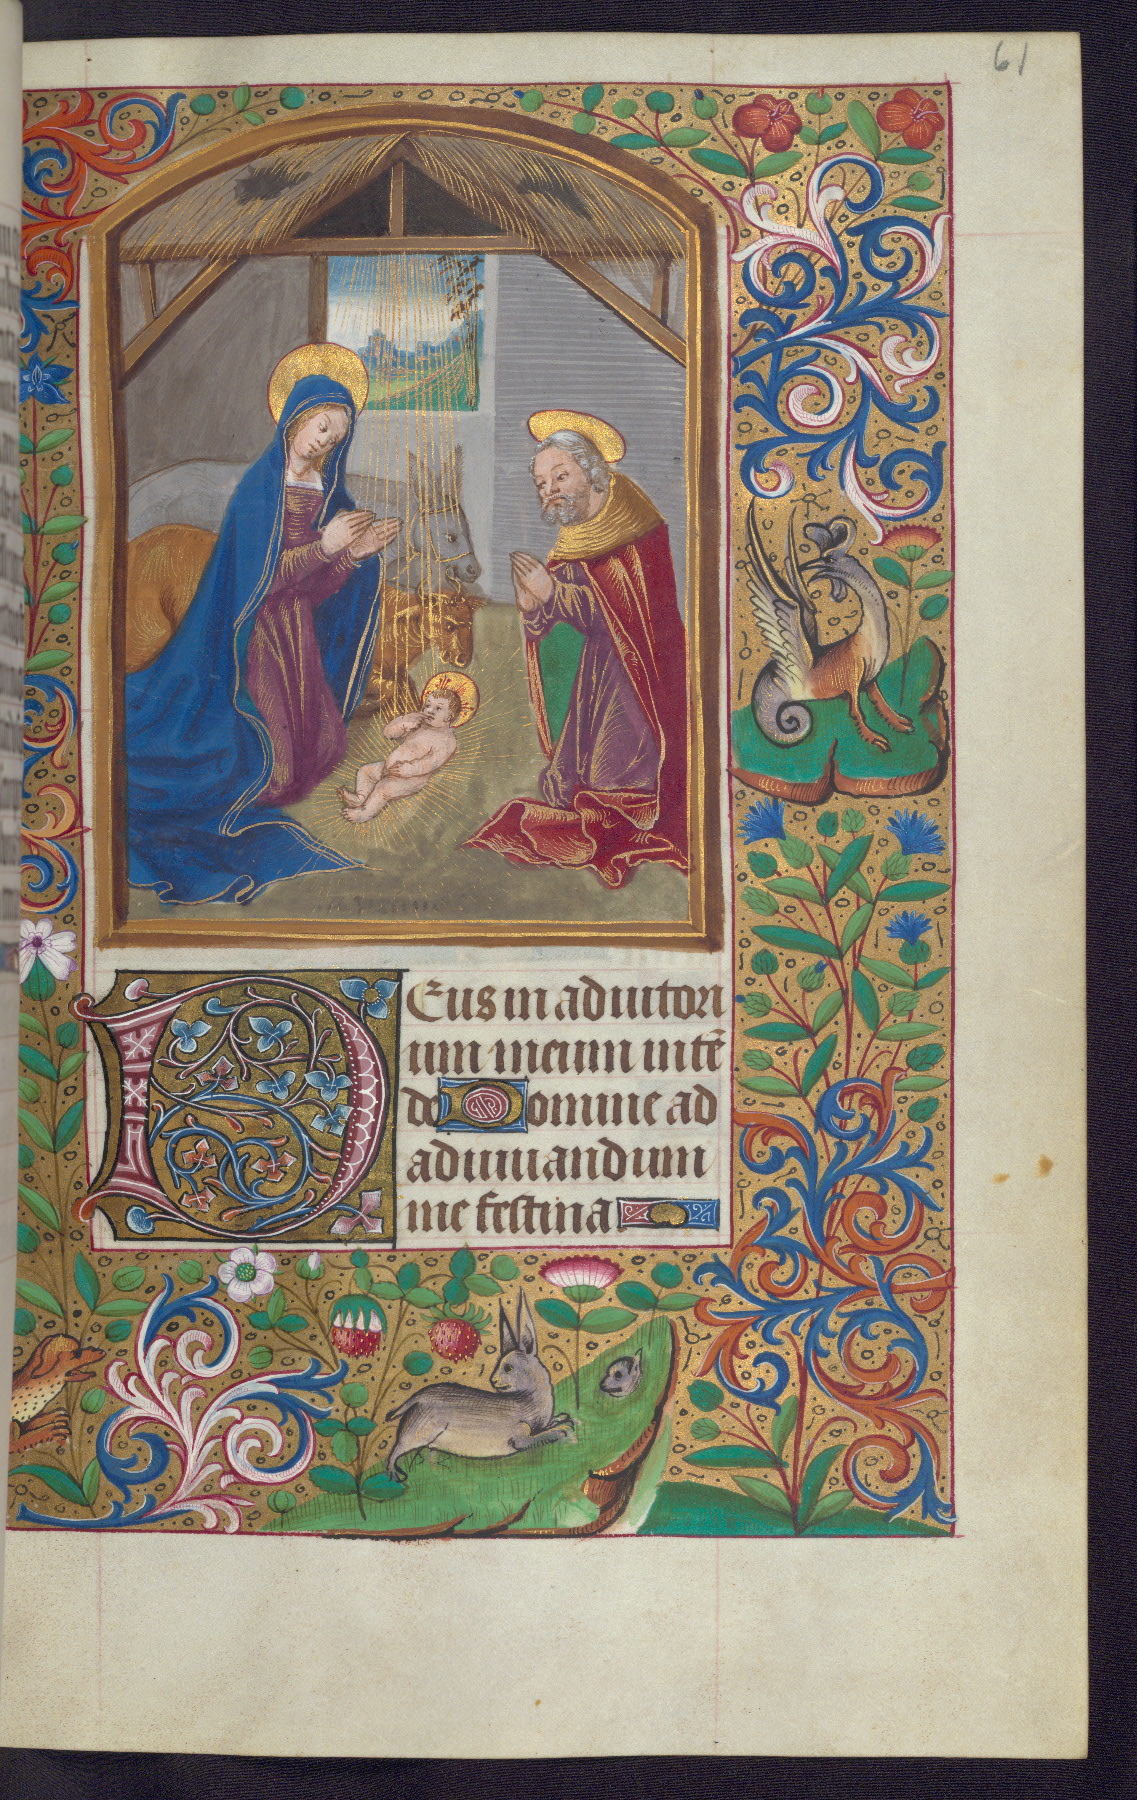 61
Deus in adiutori
um meum intē
de Domine ad
adiuuandum
me festina.